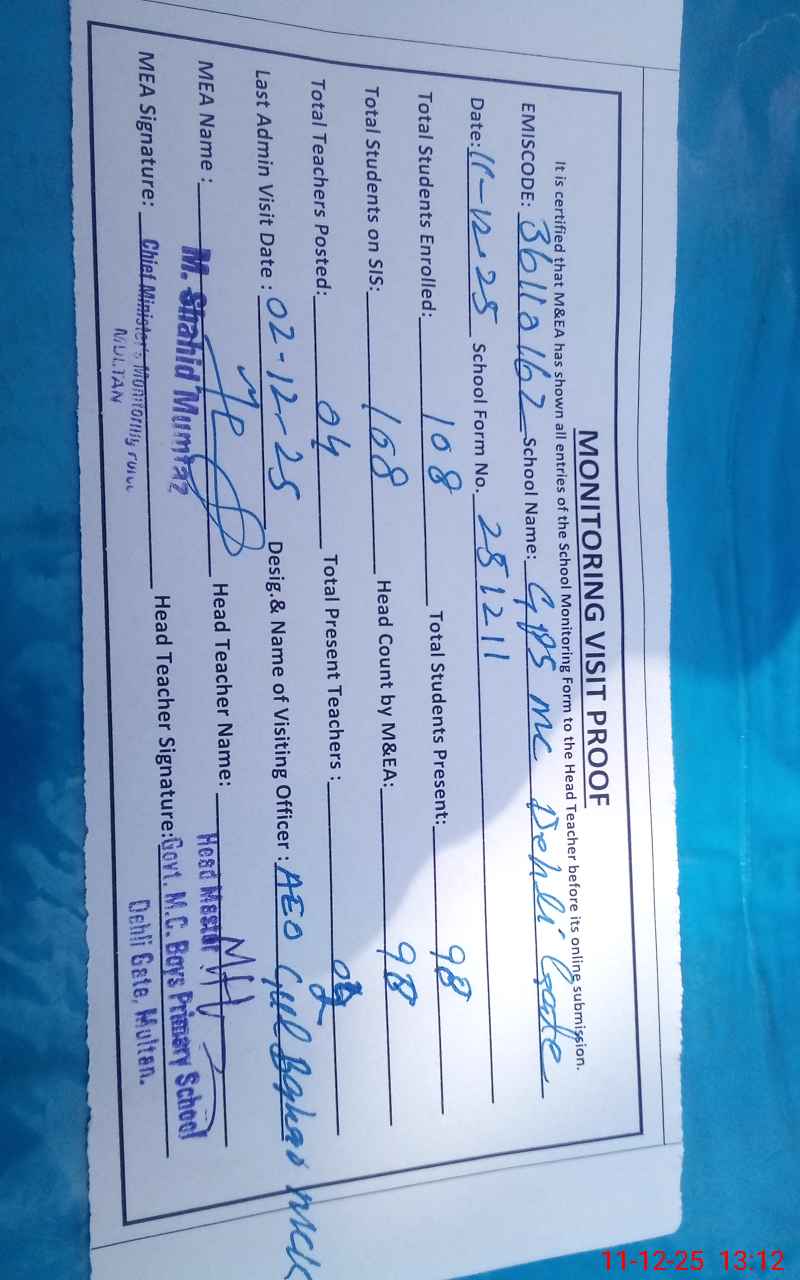 MONITORING VISIT PROOF
It is certified that M&EA has shown all entries of the School Monitoring Form to the Head Teacher before its online submission.
EMISCODE: 36110162 School Name: GPS MC Dehli Gate
Date: 11-12-25 School Form No. 251211
Total Students Enrolled: 108 Total Students Present: 98
Total Students on SIS: 108 Head Count by M&EA: 98
Total Teachers Posted: 04 Total Present Teachers :
Last Admin Visit Date : 02-12-25 Desig.& Name of Visiting Officer : AEO Gul
MEA Name : M. Shahid Mumtaz Head Teacher Name: Head Master
MEA Signature: Chief Minister's Monitoring Force Head Teacher Signature: Govt. M.C. Boys Primary School
MULTAN Dehli Gate, Multan.
11-12-25 13:12